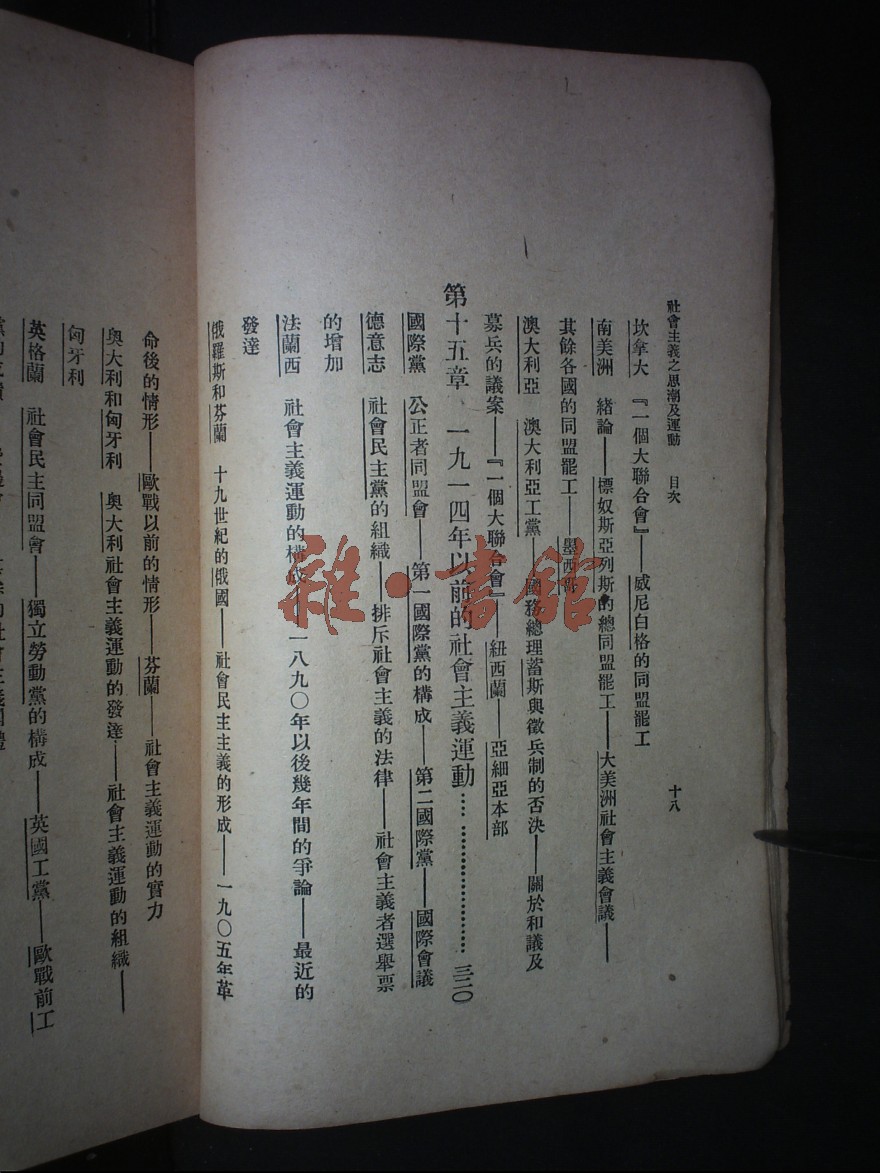 社會主義之思潮及運動 目次 十八
坎拿大 『一個大聯合會』——威尼白格的同盟罷工
南美洲 緒論——標奴斯亞列斯的總同盟罷工——大美洲社會主義會議——
其餘各國的同盟罷工——墨西哥
澳大利亞 澳大利亞工黨——國務總理蓄斯與徵兵制的否決——關於和議及
募兵的議案——『一個大聯合會』——紐西蘭——亞細亞本部
第十五章、一九一四年以前的社會主義運動…………………… 三二〇
國際黨 公正者同盟會——第一國際黨的構成——第二國際黨——國際會議
德意志 社會民主黨的組織——排斥社會主義的法律——社會主義者選舉票
的增加
法蘭西 社會主義運動的構成——一八九〇年以後幾年間的爭論——最近的
發達
俄羅斯和芬蘭 十九世紀的俄國——社會民主主義的形成——一九〇五年革
命後的情形——歐戰以前的情形——芬蘭——社會主義運動的實力
奧大利和匈牙利 奧大利社會主義運動的發達——社會主義運動的組織——
匈牙利
英格蘭 社會民主同盟會——獨立勞動黨的構成——英國工黨——歐戰前工
雜·書館